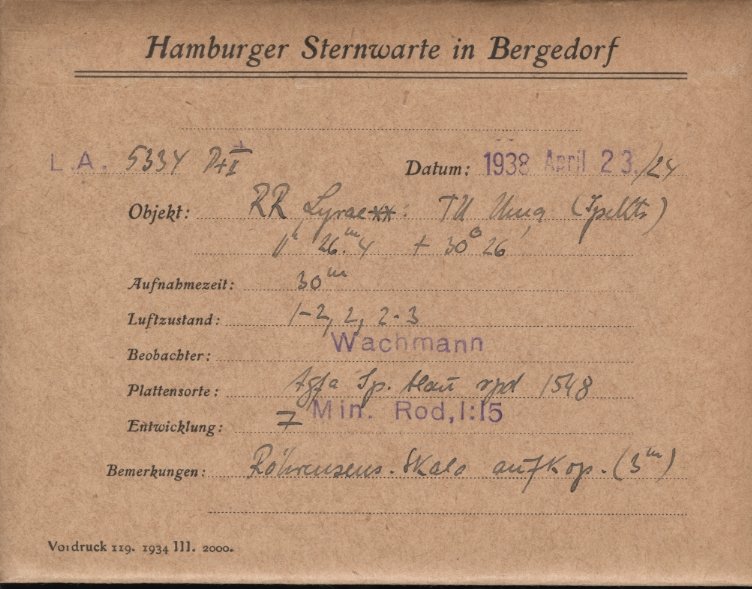 Hamburger Sternwarte in Bergedorf
L.A. 5334 Datum: 1938 April 23./24
Objekt: RR Lyrae ** : TU Uma
11h 26.m4 + 30° 26'
Aufnahmezeit: 30m
Luftzustand: 1-2, 2, 2-3
Beobachter: Wachmann
Plattensorte: Agfa Sp. blau rpd 1548
Entwicklung: 7 Min. Rod, 1:15
Bemerkungen: Röhrensens. Skala aufkop. (3m)
Vordruck 119. 1934 III. 2000.